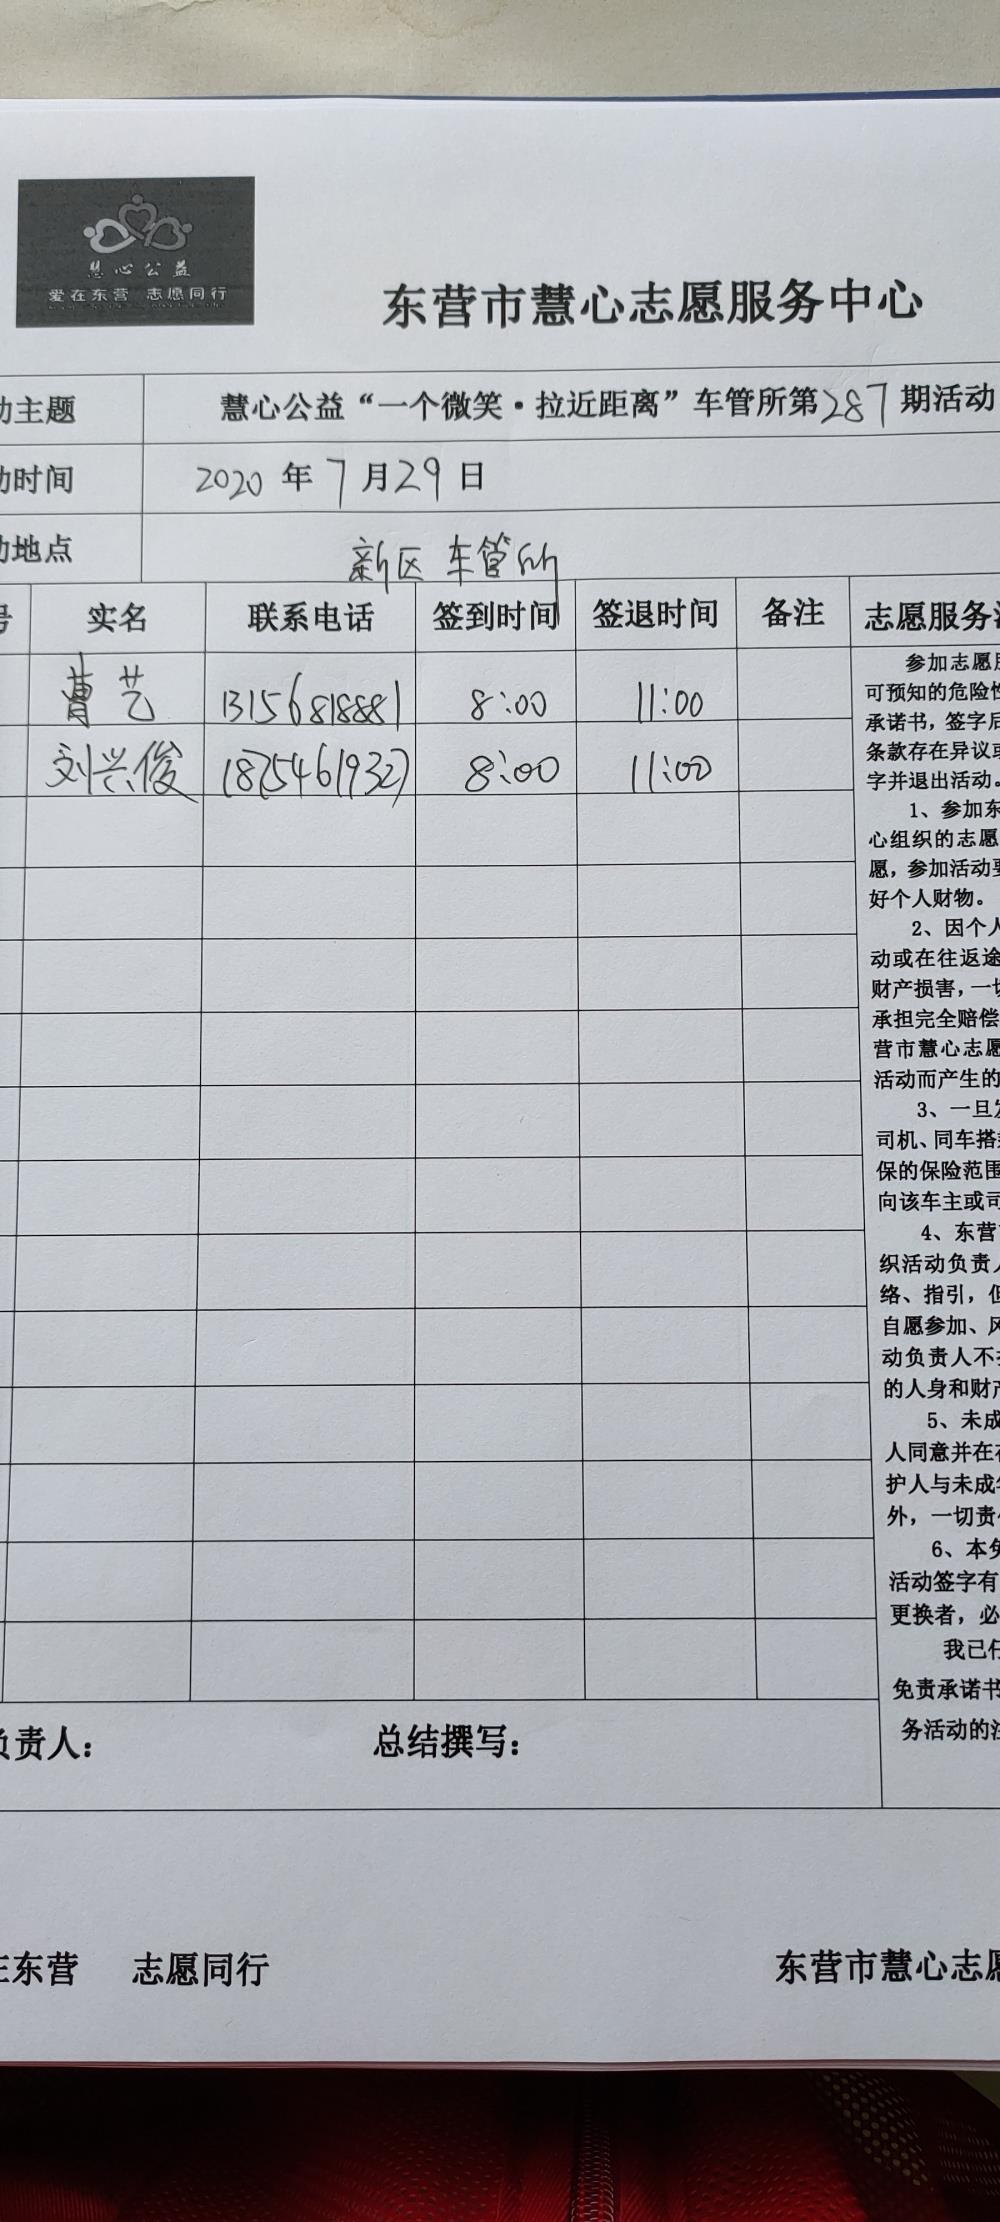 慧心公益
爱在东营 志愿同行
东营市慧心志愿服务中心
动主题 慧心公益“一个微笑·拉近距离”车管所第287期活动
动时间 2020年7月29日
动地点 新区车管所
号 实名 联系电话 签到时间 签退时间 备注 志愿服务
曹艺 13156818881 8:00 11:00
刘兴俊 18254619327 8:00 11:00
参加志愿服
可预知的危险性
承诺书，签字后
条款存在异议或
字并退出活动。
1、参加东
心组织的志愿
愿，参加活动要
好个人财物。
2、因个人
动或在往返途
财产损害，一切
承担完全赔偿
营市慧心志愿
活动而产生的
3、一旦发
司机、同车搭乘
保的保险范围
向该车主或司
4、东营市
织活动负责人
络、指引，但
自愿参加、风
动负责人不承
的人身和财产
5、未成
人同意并在在
护人与未成年
外，一切责任
6、本免
活动签字有
更换者，必
我已仔
免责承诺书
务活动的注
负责人： 总结撰写：
在东营 志愿同行 东营市慧心志愿